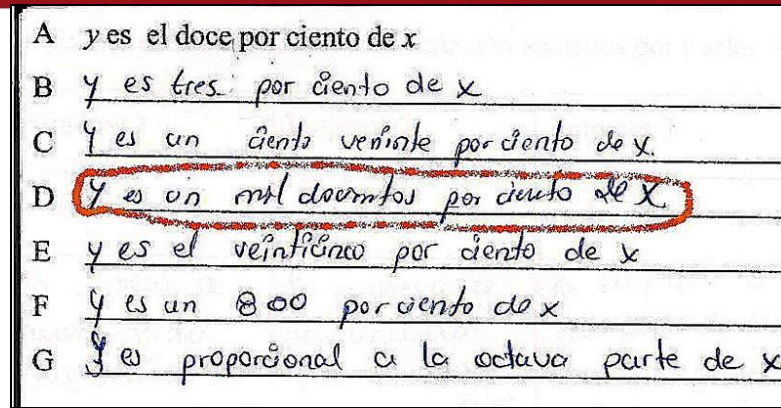 A y es el doce por ciento de x
B y es tres por ciento de x
C y es un ciento veninte por ciento de x.
D y es un mil docientos por ciento de x
E y es el veinticinco por ciento de x
F y es un 800 por ciento de x
G y es proporcional a la octava parte de x